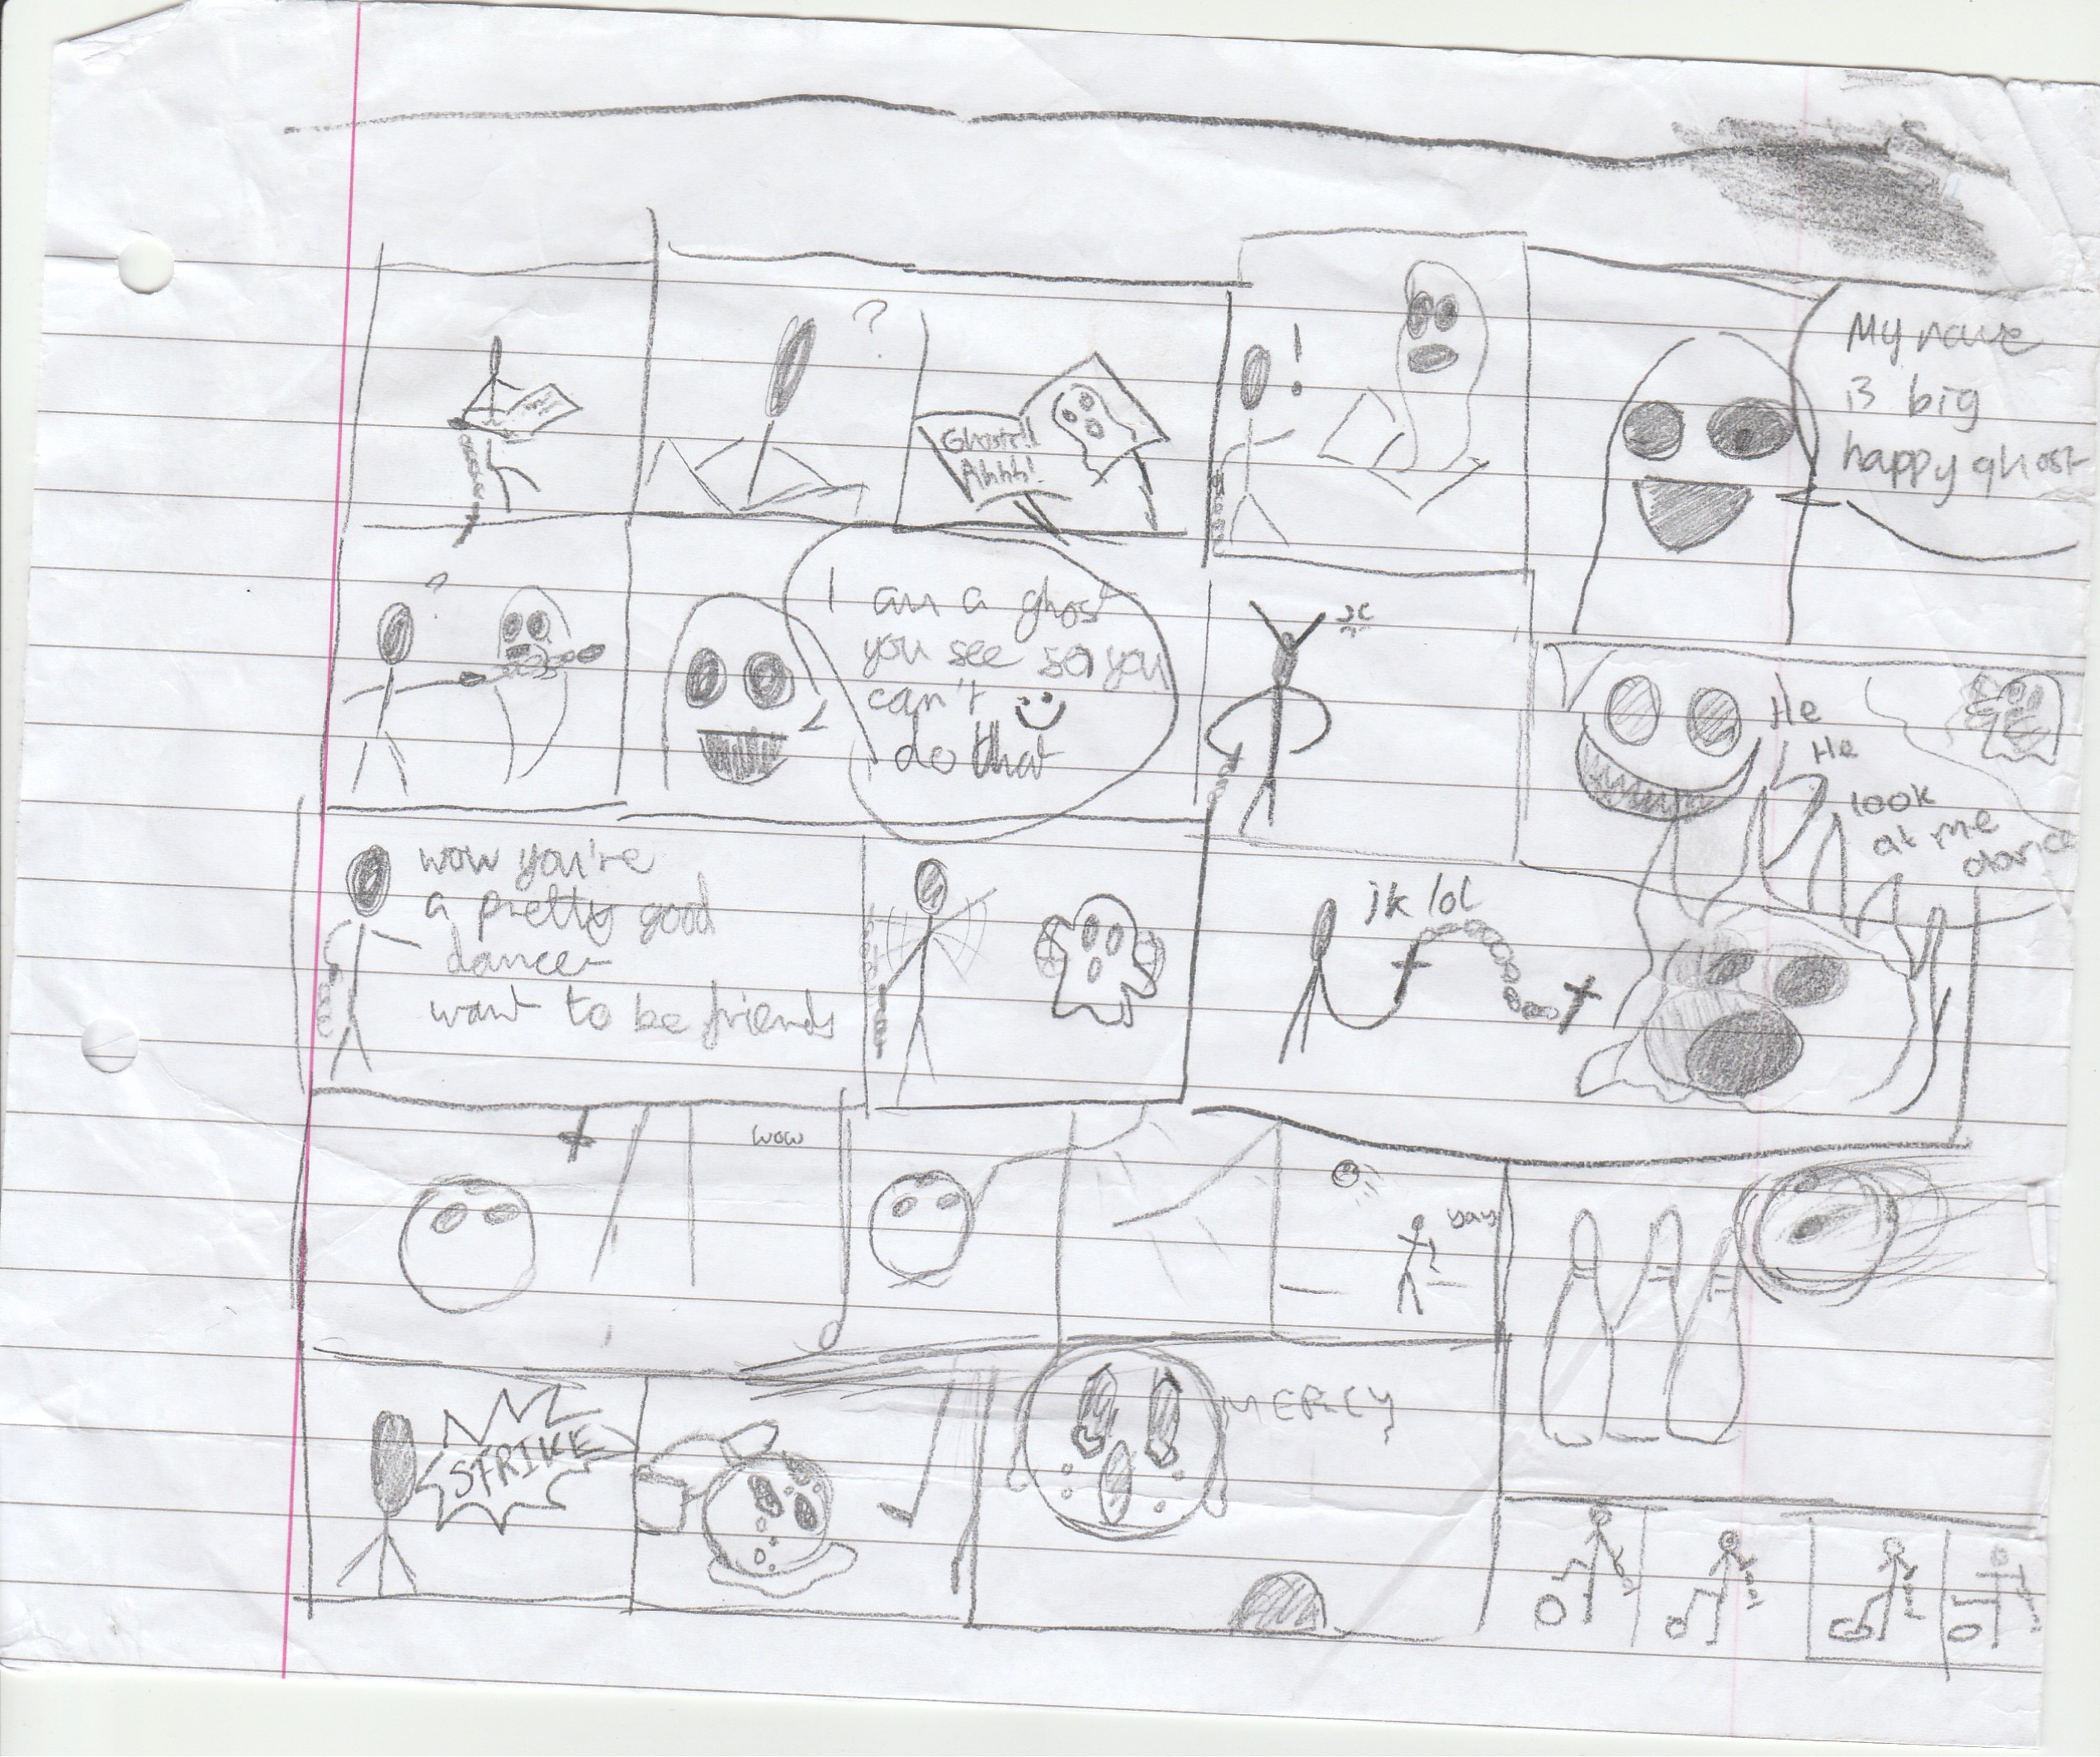 ?
Ghosts!!
Ahhh!
!
My name
is big
happy ghost
?
I am a ghost
you see so you
can't
do that
He
He
look
at me
dance
wow you're
a pretty good
dancer
want to be friends
jk lol
wow
yay
STRIKE
MERCY